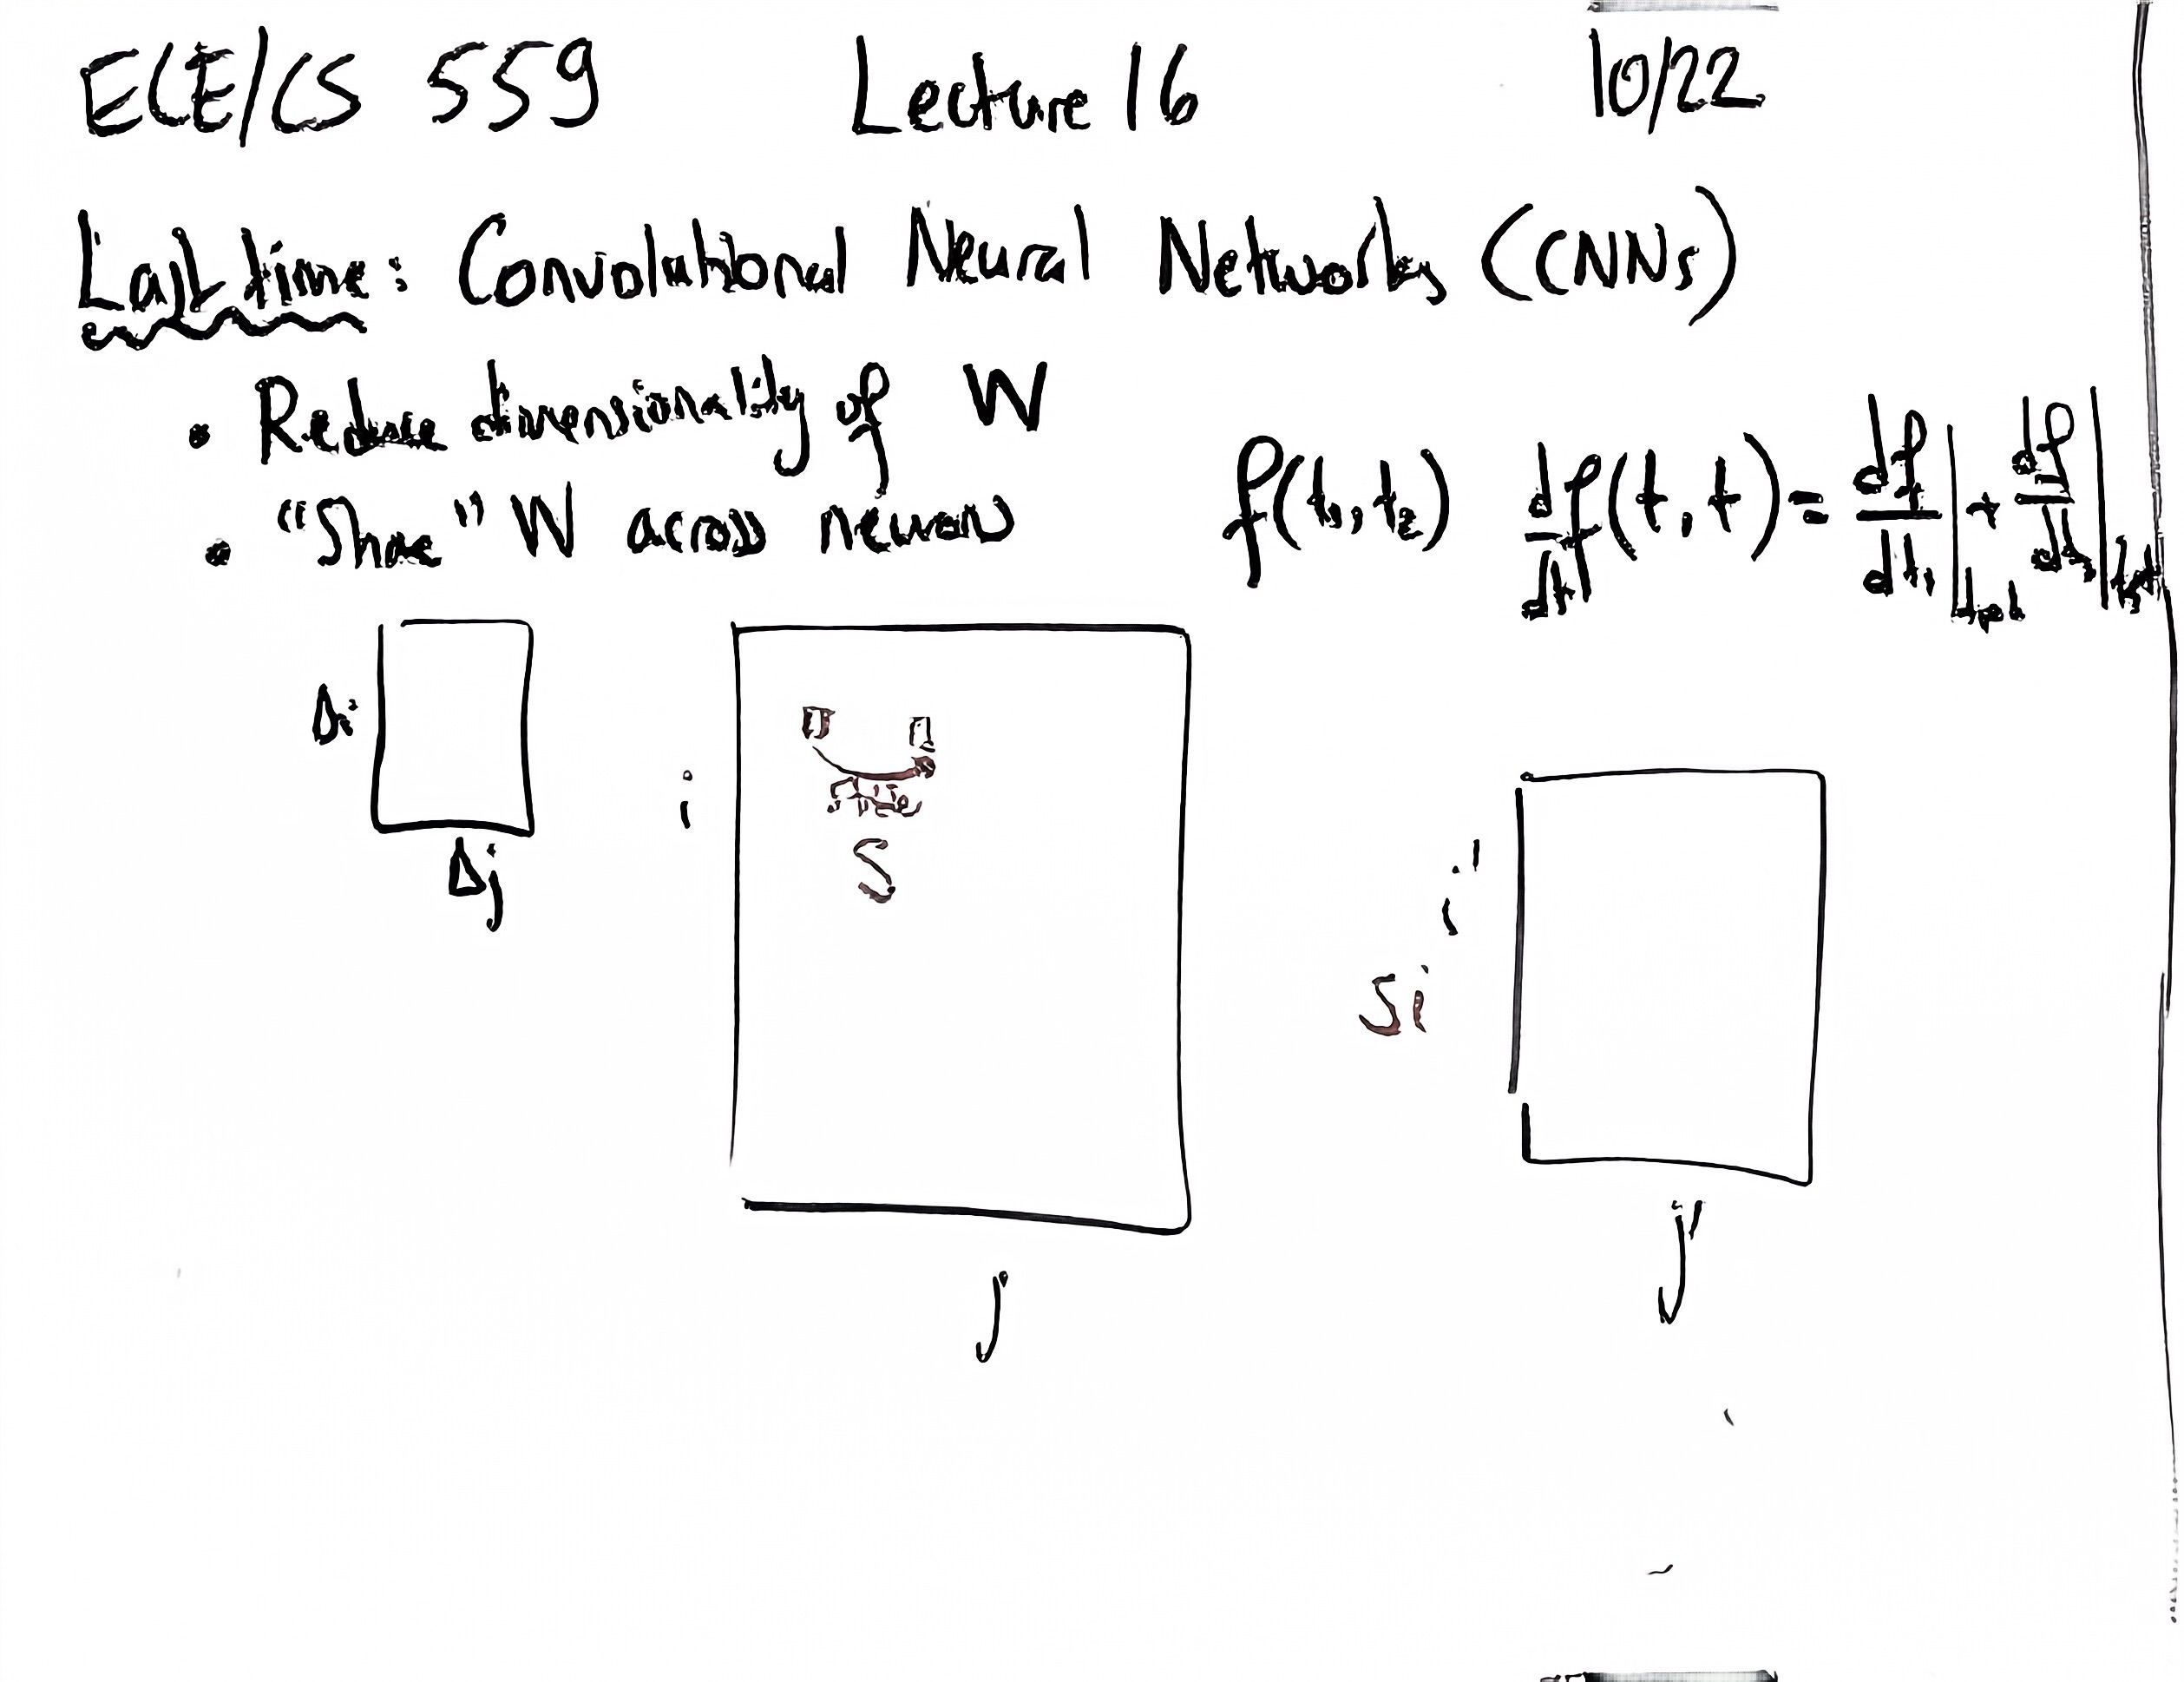 ECE/CS 559 Lecture 16 10/22
Last time: Convolutional Neural Networks (CNNs)
• Reduce dimensionality of W
• "Share" W across neurons
f(t₁,t₂) d/dt f(t,t) = df/dt₁| + df/dt₂|
Δi
Δj
i
stride
S
j
i'
Si
j'